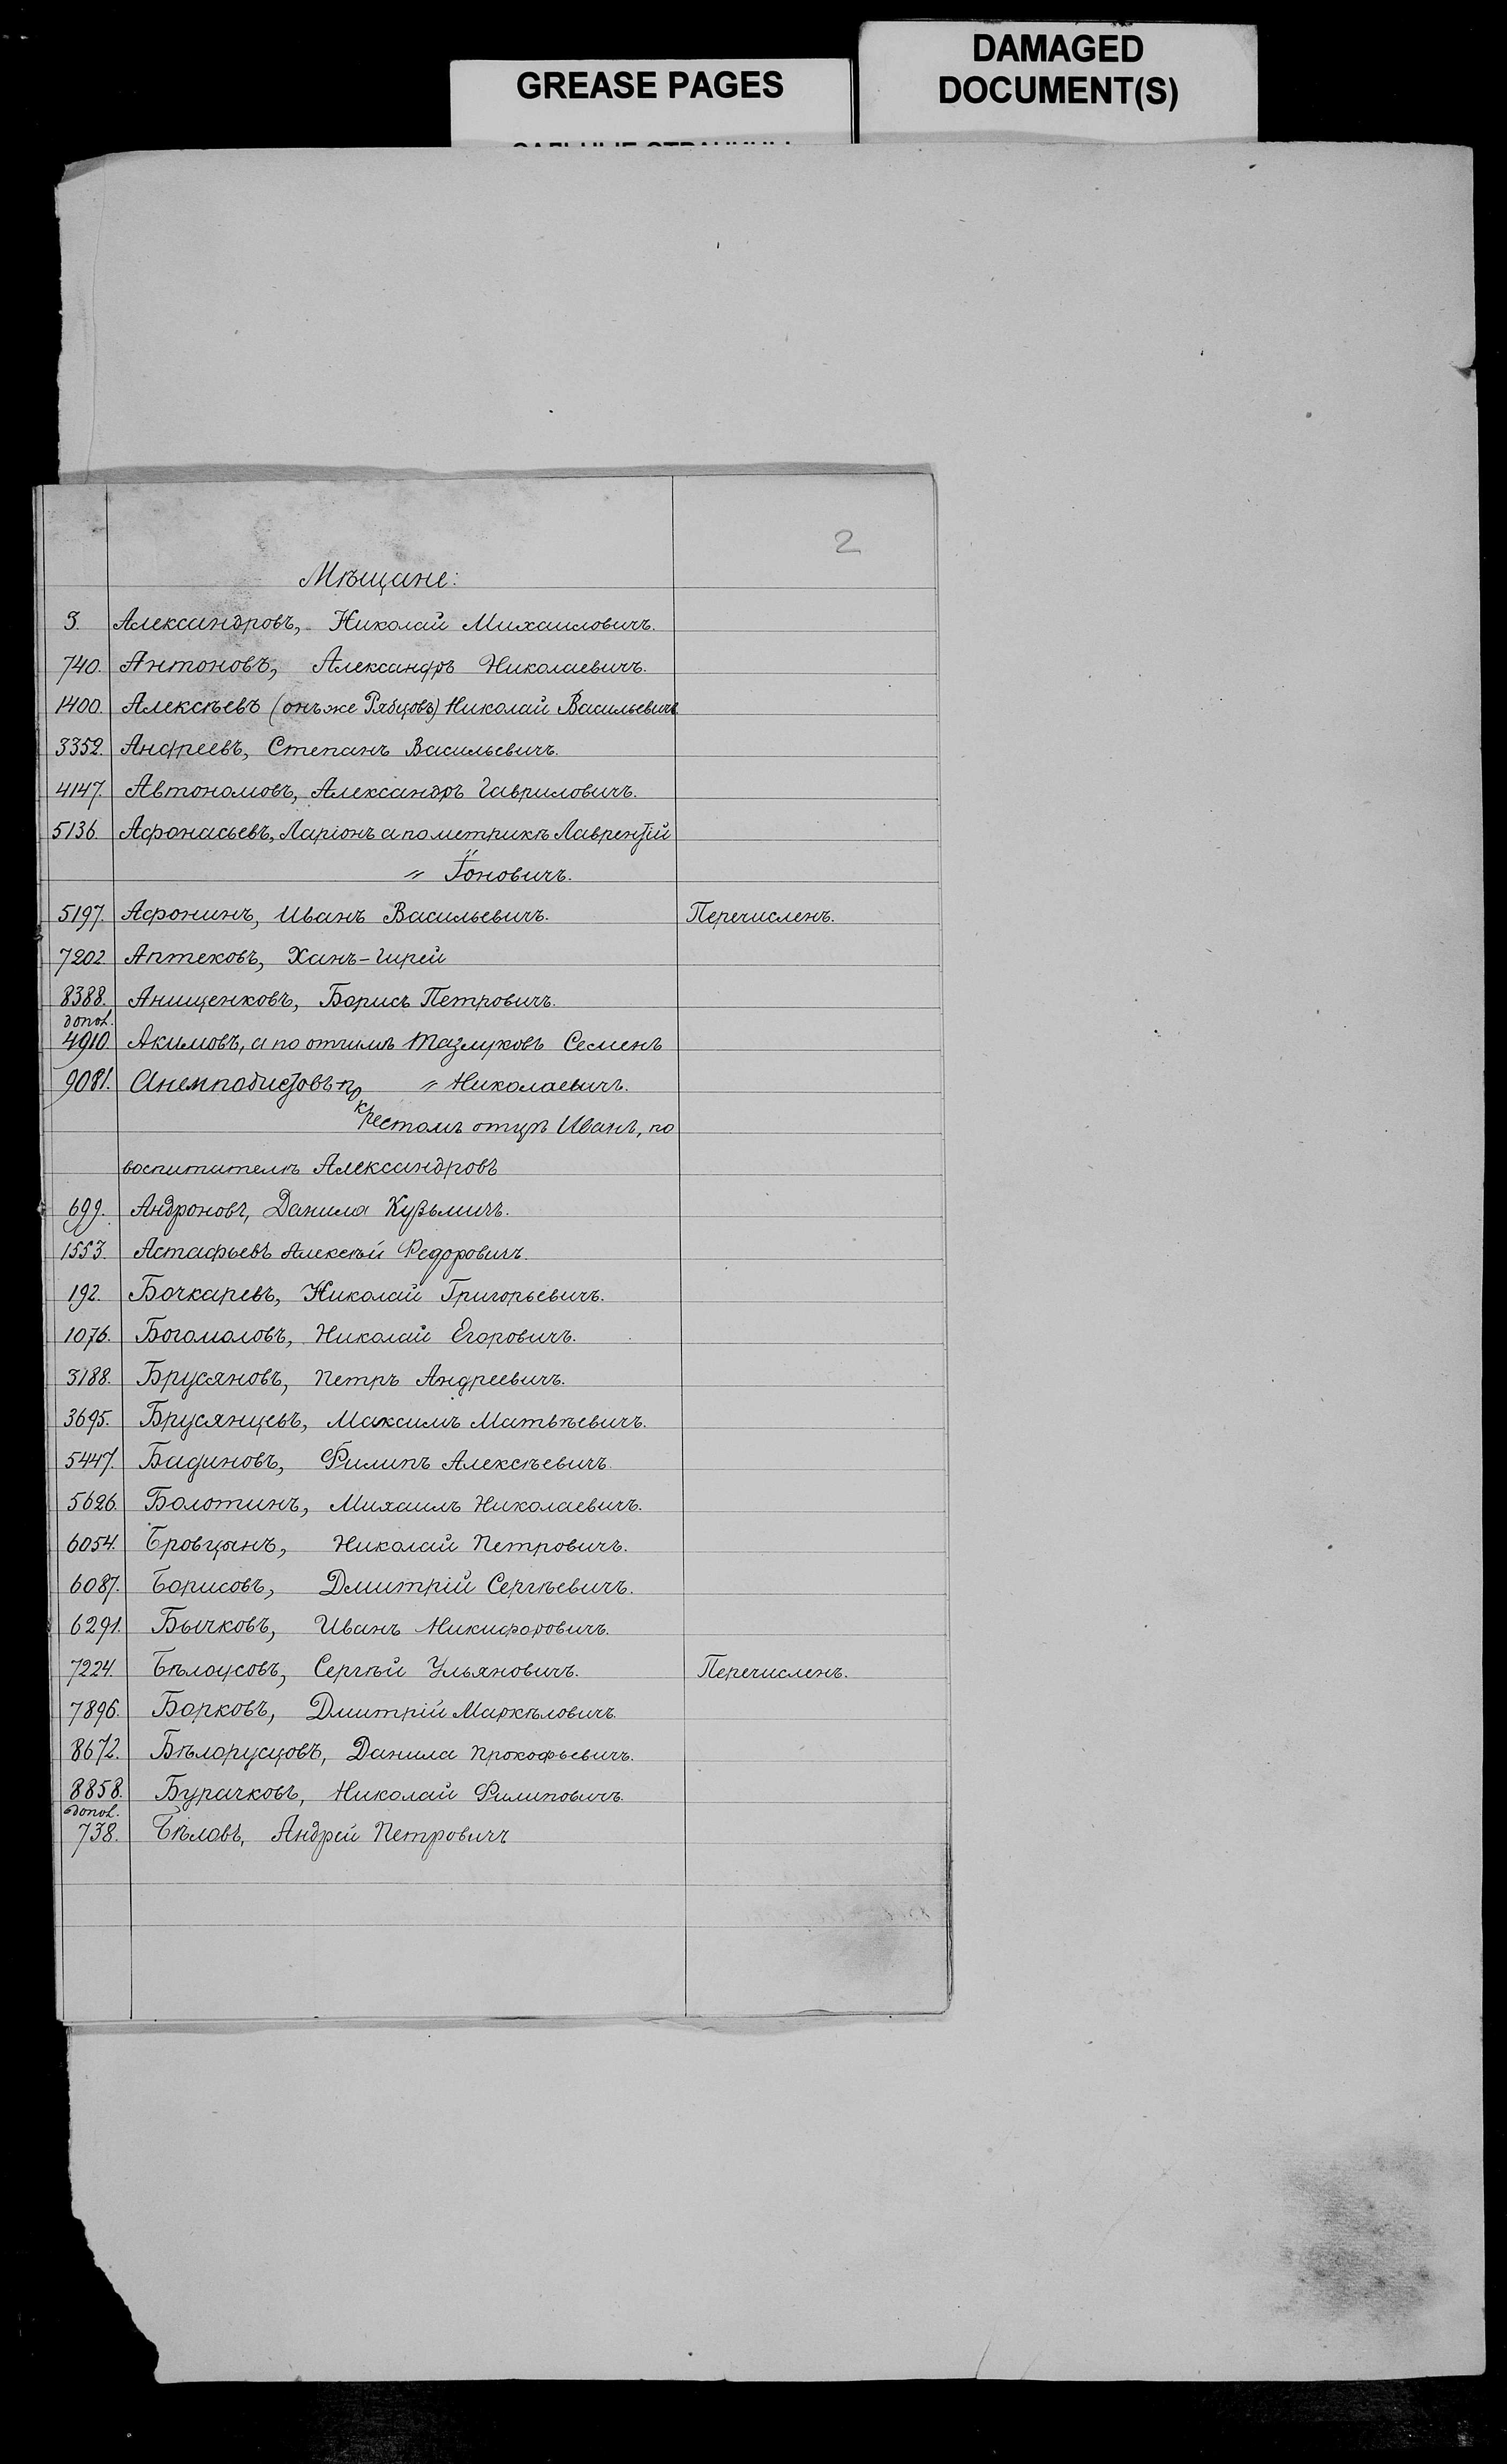 DAMAGED
DOCUMENT(S)
GREASE PAGES
2
Мѣщане:
3. Александровъ, Николай Михаиловичъ.
740. Антоновъ, Александръ Николаевичъ.
1400. Алексѣевъ (онъ же Рябцовъ) Николай Васильевичъ
3352. Андреевъ, Степанъ Васильевичъ.
4147. Автономовъ, Александръ Гавриловичъ.
5136. Афонасьевъ, Ларіонъ а по метрикѣ Лаврентій
" Іоновичъ.
5197. Афонинъ, Иванъ Васильевичъ. Перечисленъ.
7202. Аптековъ, Ханъ-Гирей
8388. Анищенковъ, Борисъ Петровичъ.
допол.
4910. Акимовъ, а по отчимѣ Тазлуковъ Семенъ
" Николаевичъ.
9081. Анемподистовъ по
крестномъ отцѣ Иванъ, по
воспитателѣ Александровъ
699. Андроновъ, Данила Кузьмичъ.
1553. Астафьевъ Алексѣй Федоровичъ.
192. Бочкаревъ, Николай Григорьевичъ.
1076. Богомоловъ, Николай Егоровичъ.
3188. Брусяновъ, Петръ Андреевичъ.
3695. Брусянцевъ, Максимъ Матвѣевичъ.
5447. Бадиновъ, Филипъ Алексѣевичъ.
5626. Болотинъ, Михаилъ Николаевичъ.
6054. Бровцынъ, Николай Петровичъ.
6087. Борисовъ, Дмитрій Сергѣевичъ.
6291. Бычковъ, Иванъ Никифоровичъ.
7224. Бѣлоусовъ, Сергѣй Ульяновичъ. Перечисленъ.
7896. Борковъ, Дмитрій Маркѣловичъ.
8672. Бѣлорусцовъ, Данила Прокофьевичъ.
8858. Бурачковъ, Николай Филиповичъ.
допол.
738. Бѣловъ, Андрей Петровичъ